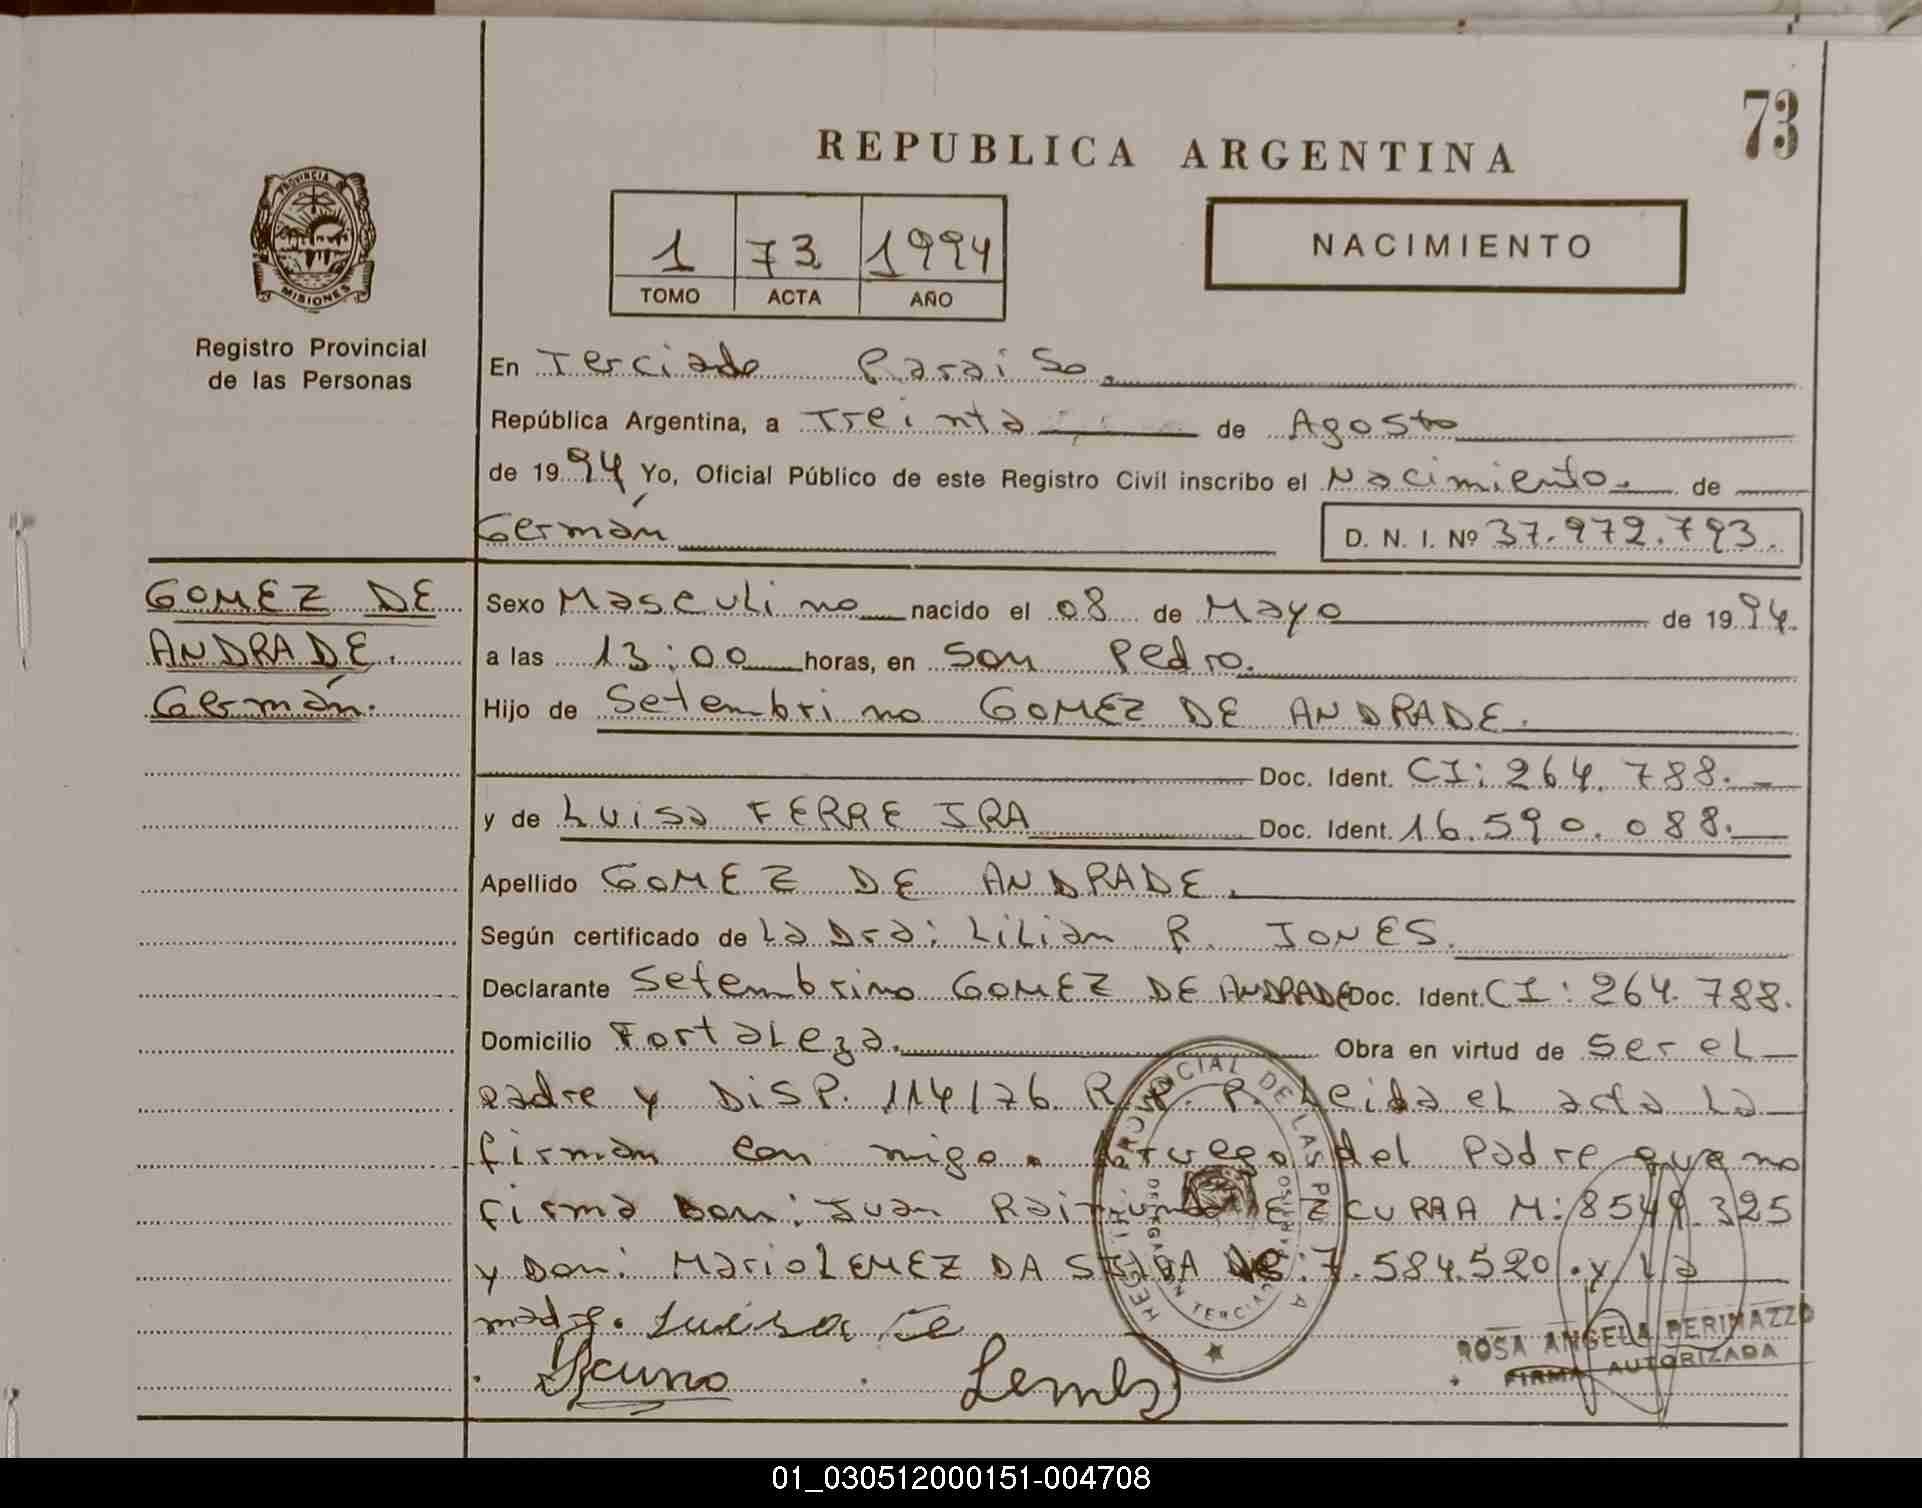 73
REPUBLICA ARGENTINA
PROVINCIA DE
MISIONES
Registro Provincial
de las Personas
1 73 1994
TOMO ACTA AÑO
NACIMIENTO
En Terciado Paraiso.
República Argentina, a Treinta de Agosto
de 1994 Yo, Oficial Público de este Registro Civil inscribo el Nacimiento. de
Germán D. N. I. Nº 37.972.793.
GOMEZ DE
ANDRADE.
Germán.
Sexo Masculino nacido el 08 de Mayo de 1994.
a las 13:00 horas, en San Pedro.
Hijo de Setembrino GOMEZ DE ANDRADE.
Doc. Ident. CI: 264.788.-
y de Luisa FERREIRA Doc. Ident. 16.590.088.
Apellido GOMEZ DE ANDRADE.
Según certificado de La Dra: Lilian R. JONES.
Declarante Setembrino GOMEZ DE ANDRADE Doc. Ident. CI: 264.788.
Domicilio Fortaleza. Obra en virtud de ser el
padre y DISP. 114/76 R.P.P. Leida el acta La
firman con migo. A ruego del Padre que no
firma Don: Juan EZCURRA M: 8549.325
y Don: Mario LEMEZ DA SILVA 7.584.520. y La
madre. Luisa Fe
ROSA ANGELA PERIMAZZO
FIRMA AUTORIZADA
01_030512000151-004708